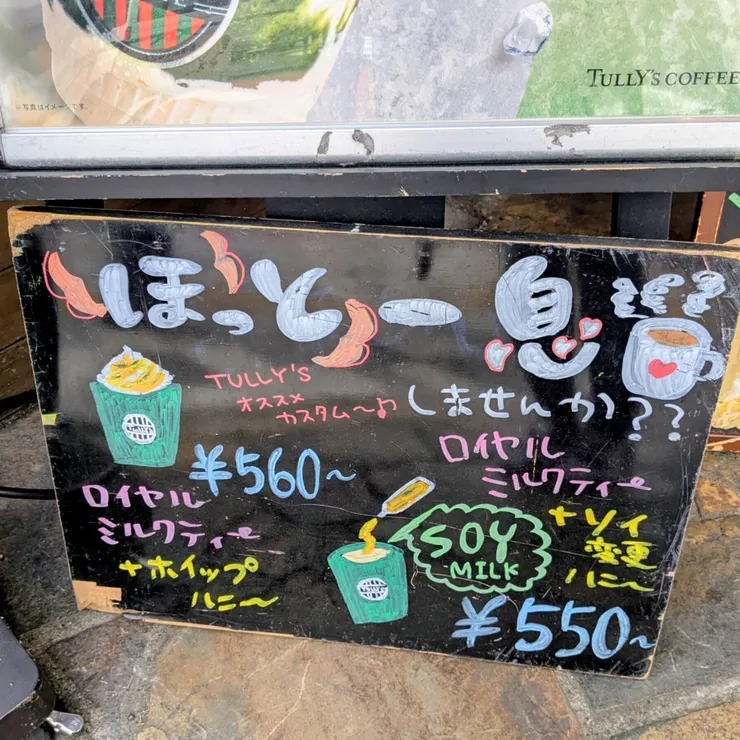 ※写真はイメージです。
TULLY'S COFFEE
ほっと一息
TULLY'S
オススメ
カスタム〜♪
しませんか??
¥560~
ロイヤル
ミルクティー
+ホイップ
ハニー
ロイヤル
ミルクティー
+ソイ
変更
ハニー
SOY
MILK
¥550~